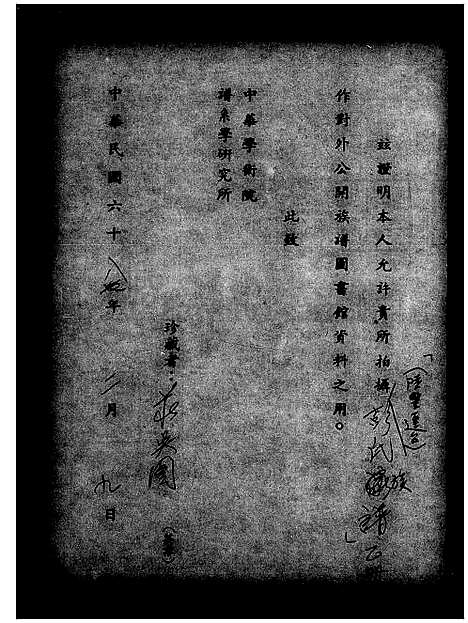 茲證明本人允許貴所拍攝彭氏族譜
作對外公開族譜圖書館資料之用。
此致
中華學術院
譜系學研究所
珍藏者：
中華民國六十八年二月九日